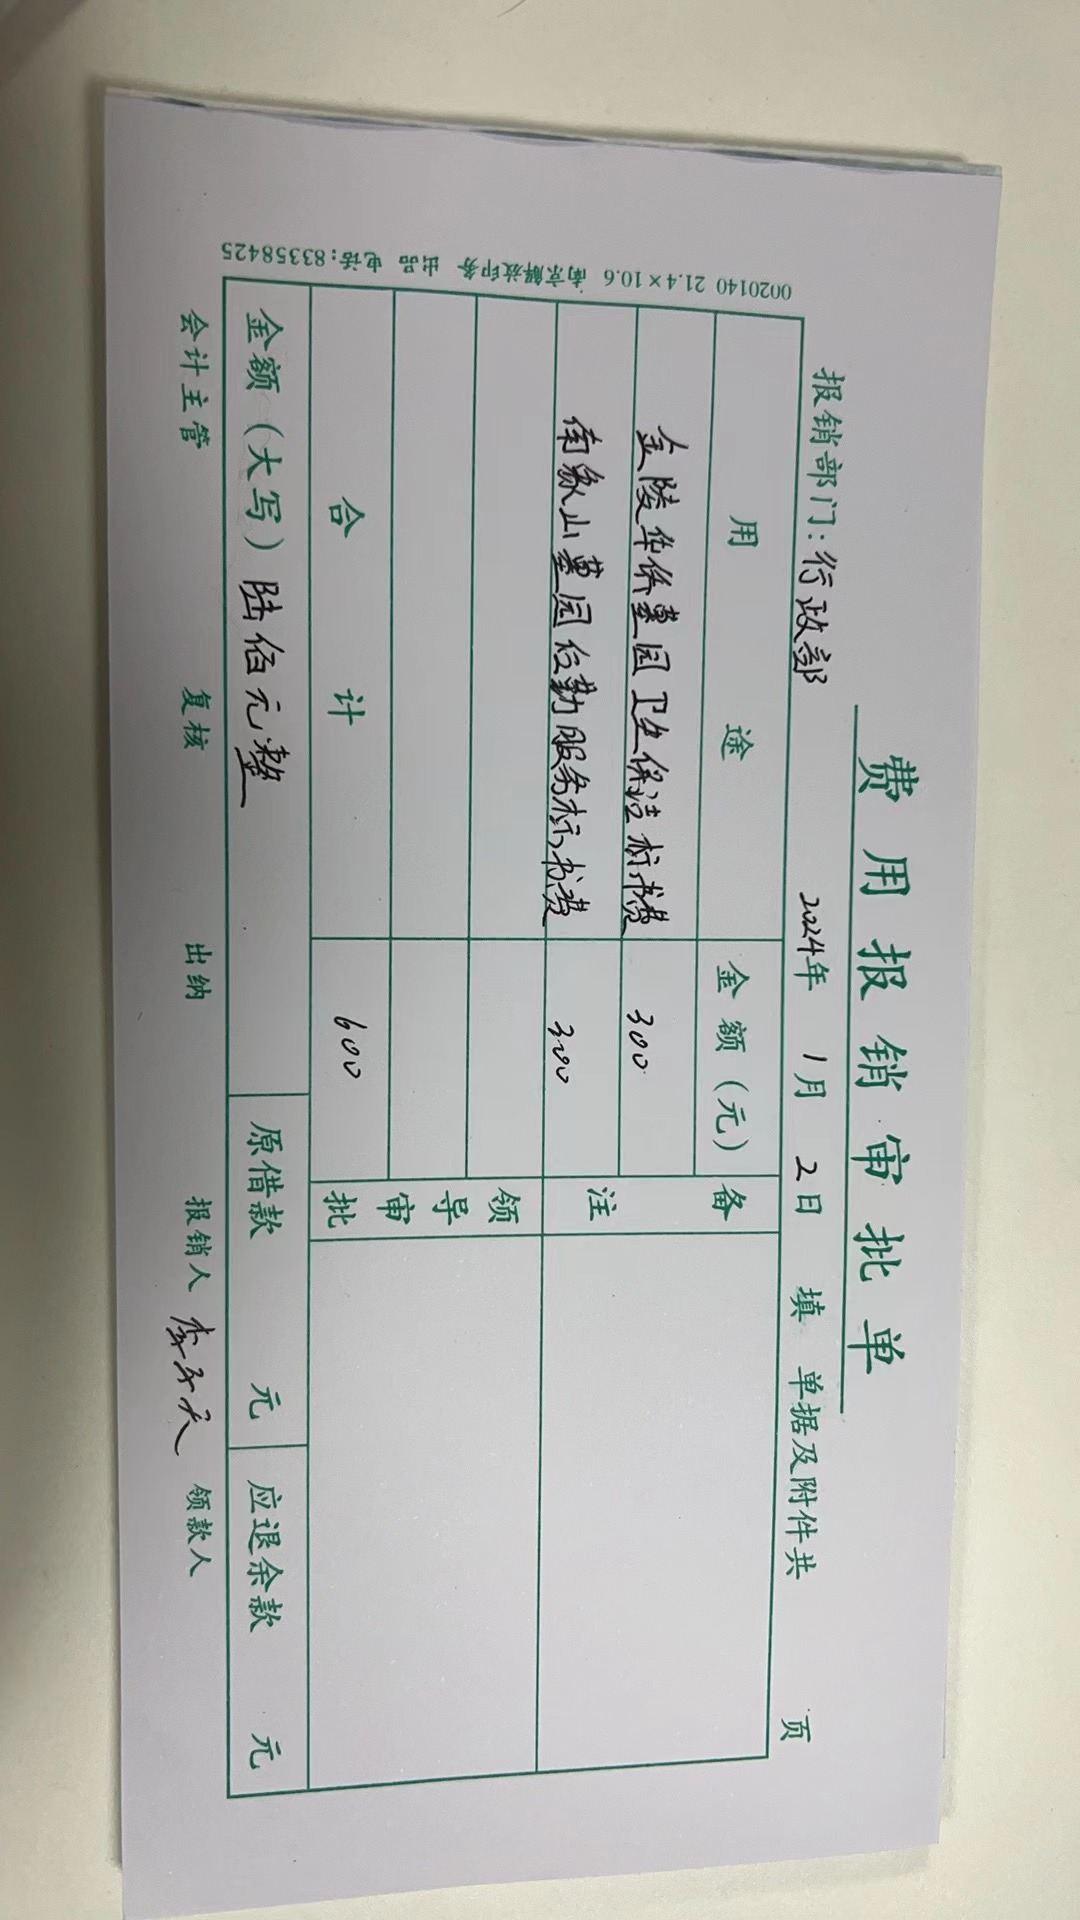 费用报销审批单
报销部门：行政部 2024年 1月 2日 填 单据及附件共 页
用途 金额（元） 备注
金陵华侨墓园卫生保洁标书费 300
南象山墓园后勤服务标书费 300
领导审批
合计 600
金额（大写）陆佰元整 原借款 元 应退余款 元
会计主管 复核 出纳 报销人 领款人
0020140 21.4×10.6 南京解放印务 出品 电话：83358425